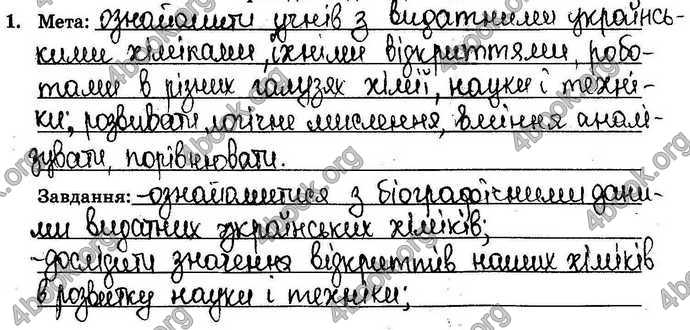 1. Мета: ознайомити учнів з видатними українсь-
кими хіміками, їхніми відкриттями, робо-
тами в різних галузях хімії, науки і техні-
ки; розвивати логічне мислення, вміння аналі-
зувати, порівнювати.
Завдання: -ознайомитися з біографічними дани-
ми видатних українських хіміків;
-дослідити значення відкриттів наших хіміків
в розвитку науки і техніки;